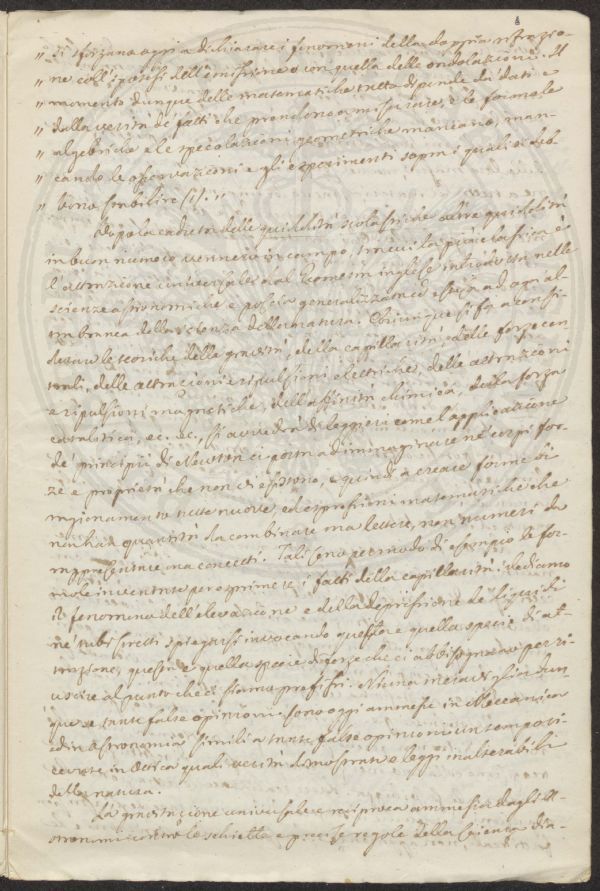 " si sforzano oggi a dichiarare i fenomeni della doppia rifrazio-
" ne coll'ipotesi dell'emissione o con quella delle ondolazioni. Il
" momento dunque delle matematiche tutto dipende dai dati e
" dalla verità de' fatti che prendono a misurare, e le formole
" algebriche e le specolazioni geometriche mancano, man-
" cando le osservazioni e gli esperimenti sopra i quali si deb-
" bono stabilire (1). "
Dopo la caduta delle quiddità scolastiche altre quiddità
in buon numero vennero in campo, tra cui la più classica è
l'attrazione universale dal Geometra inglese introdotta nelle
scienze astronomiche e poscia generalizzata ed estesa ad ogni al-
tra branca della scienza della natura. Chiunque si fa a consi-
derare le teoriche della gravità, della capillarità, delle forze cen-
trali, delle attrazioni e ripulsioni elettriche, delle attrazioni
e ripulsioni magnetiche, dell'affinità chimica, della forza
catalitica, ec. ec., si avvedrà di leggieri come l'applicazione
de' principii di Newton ci porta ad immaginare ne' corpi for-
ze e proprietà che non ci esistono, e quindi a creare forme di
ragionamento tutte nuove, ed espressioni matematiche che
non han quantità da combinare ma lettere, non numeri da
rappresentare ma concetti. Tali sono per modo di esempio le for-
mole inventate per esprimere i fatti della capillarità. Vediamo
il fenomeno dell'elevazione e della depressione de' liquidi
ne' tubi stretti spiegarsi invocando questa e quella specie di at-
trazione, questa e quella specie di forze che ci abbisognano per ri-
uscire al punto che ci siamo prefissi. Niuna meraviglia dun-
que se tante false opinioni sono oggi ammesse in Meccanica
ed in Astronomia simili a tante false opinioni un tempo ri-
cevute in Ottica quali verità dimostrate o leggi inalterabili
della natura.
La gravitazione universale e reciproca ammessa dagli A-
stronomi contro le schiette e precise regole della Scienza dia-